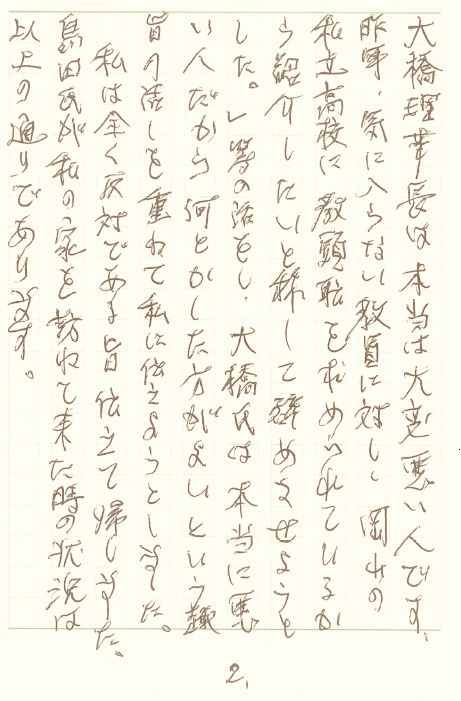 大橋理事長は本当は大変悪い人です。
昨年、気に入らない教員に対し、岡山の
私立高校に教頭職を求められているか
ら紹介したいと称して辞めさせようと
した。」等の話をし、大橋氏は本当に悪
い人だから何とかした方がよいという趣
旨の話しを重ねて私に伝えようとしました。
私は全く反対である旨伝えて帰しました。
島田氏が私の家を訪ねて来た時の状況は
以上の通りであります。
2.